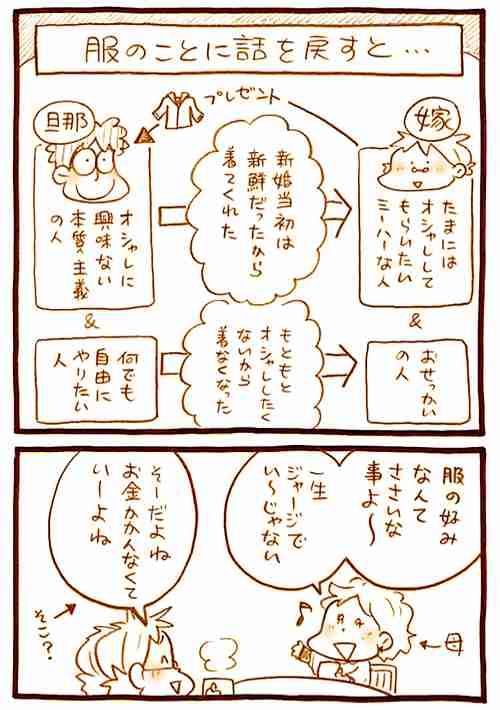 服のことに話を戻すと…
プレゼント
嫁
たまには
オシャレして
もらいたい
ミーハーな人
&
おせっかい
の人
新婚当初は
新鮮だったから
着てくれた
もともと
オシャレしたく
ないから
着なくなった
旦那
オシャレに
興味ない
本質主義
の人
&
何でも
自由に
やりたい
人
服の好み
なんて
ささいな
事よ〜
一生
ジャージで
い〜じゃない
♪
母
そーだよね
お金かかんなくて
いーよね
そこ?